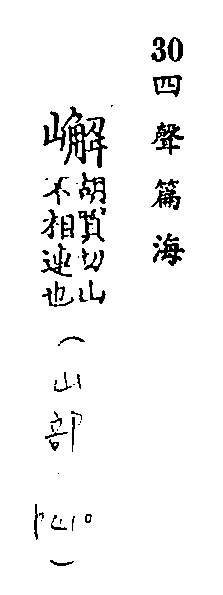 30四聲篇海
嶰
胡買切山
不相連也
（山部.
）